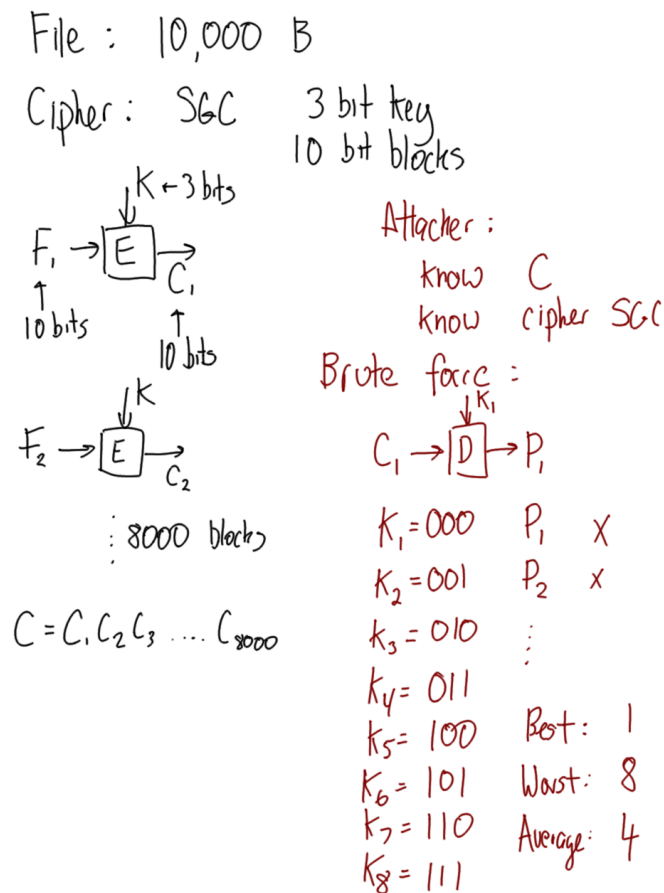 File : 10,000 B
Cipher : SGC 3 bit key
10 bit blocks
K ← 3 bits
F₁ → E → C₁
10 bits
10 bits
K
F₂ → E → C₂
⋮ 8000 blocks
C = C₁ C₂ C₃ .... C₈₀₀₀
Attacker :
know C
know cipher SGC
Brute force :
K₁
C₁ → D → P₁
K₁ = 000 P₁ X
K₂ = 001 P₂ x
K₃ = 010 ⋮
K₄ = 011
K₅ = 100 Best: 1
K₆ = 101 Worst: 8
K₇ = 110 Average: 4
K₈ = 111